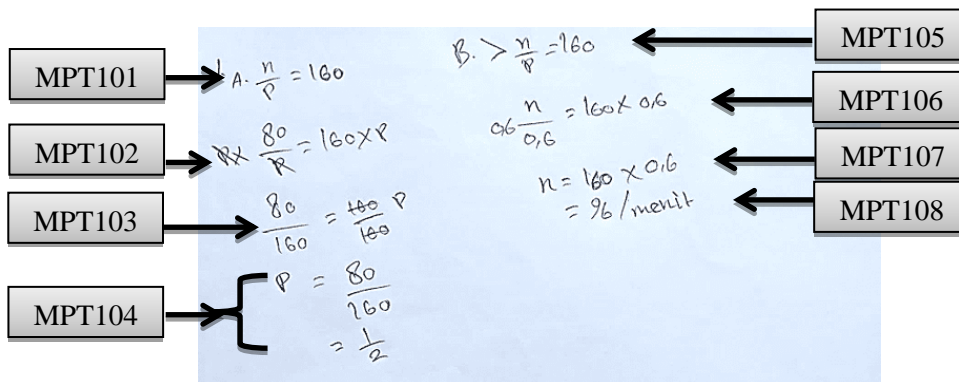 MPT101
MPT102
MPT103
MPT104
A. n/P = 160
PX 80/P = 160 X P
80/160 = 160/160 P
P = 80/160
= 1/2
B. > n/P = 160
0,6 n/0,6 = 160 X 0,6
n = 160 X 0,6
= 96/menit
MPT105
MPT106
MPT107
MPT108